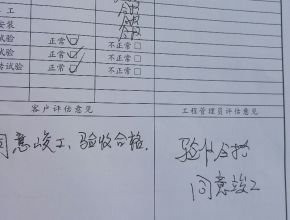 工 合格
安装 合格
试验 正常☑ 不正常□
试验 正常☑ 不正常□
试验 正常☑ 不正常□
客户评估意见 工程管理员评估意见
同意峻工、验收合格.
验收合格
同意竣工